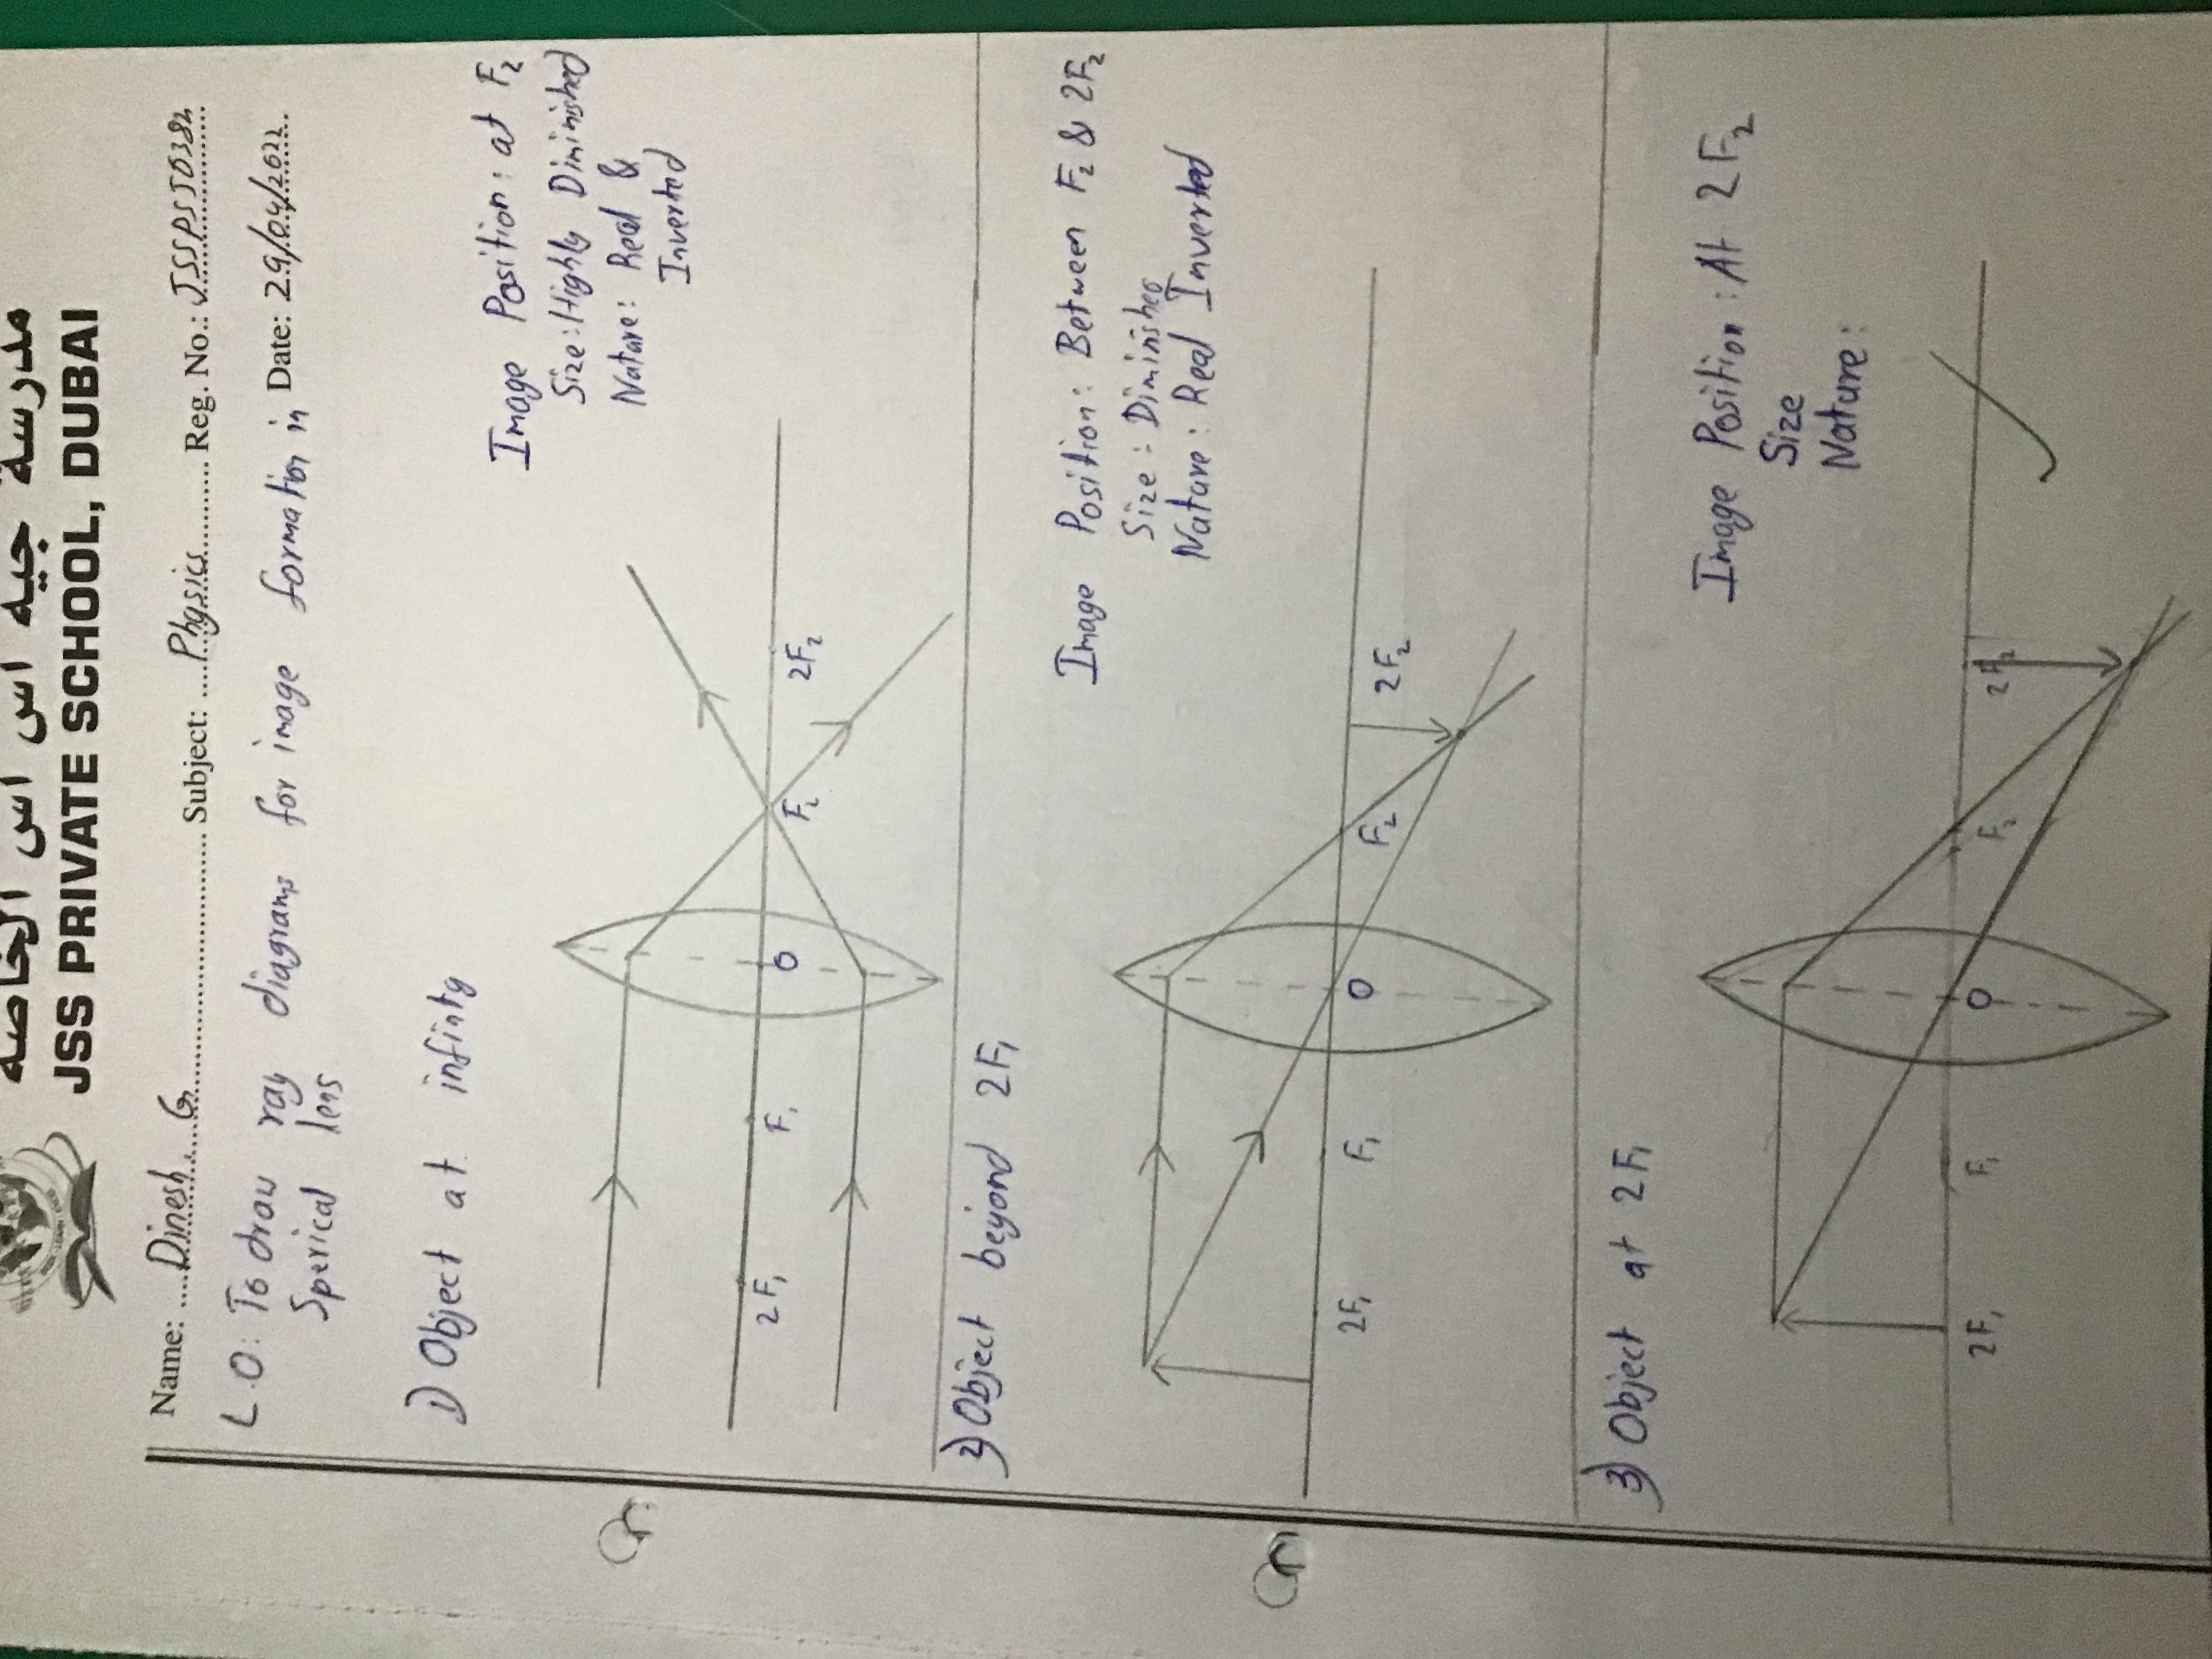 مدرسة جيه اس اس الخاصة
JSS PRIVATE SCHOOL, DUBAI
Name: Dinesh. G Subject: Physics Reg. No.:
L.O: To draw ray diagrams for image formation in Date: 29/04/2022
Sperical lens
1) Object at infinty
Image Position: at F₂
Size: Highly Diminished
Nature: Real &
Inverted
2F₁ F₁ O F₂ 2F₂
2) Object beyond 2F₁
Image Position: Between F₂ & 2F₂
Size: Diminished
Nature: Real Inverted
2F₁ F₁ O F₂ 2F₂
3) Object at 2F₁
Image Position: At 2F₂
Size
Nature:
2F₁ F₁ O F₂ 2F₂